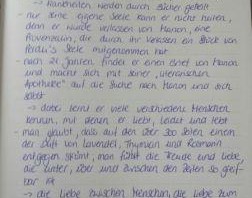 → Krankheiten werden durch Bücher geheilt
- nur seine eigene Seele kann er nicht heilen, denn er wurde verlassen von Manon, eine
Provenzalin, die durch ihr Verlassen ein Stück von
Perdu's Seele mitgenommen hat
- nach 21 Jahren findet er einen Brief von Manon
und macht sich mit seiner „literarischen
Apotheke" auf die Suche nach Manon und sich
selbst
→ dabei lernt er viele verschiedene Menschen
kennen, mit denen er liebt, leidet und lebt
- man glaubt, dass auf den über 300 Seiten einem
der Duft von Lavendel, Thymian und Rosmarin
entgegen strömt, man fühlt die Freude und Liebe,
die unter, über und zwischen den Seiten so greif-
bar ist
→ die Liebe zwischen Menschen, die Liebe zum